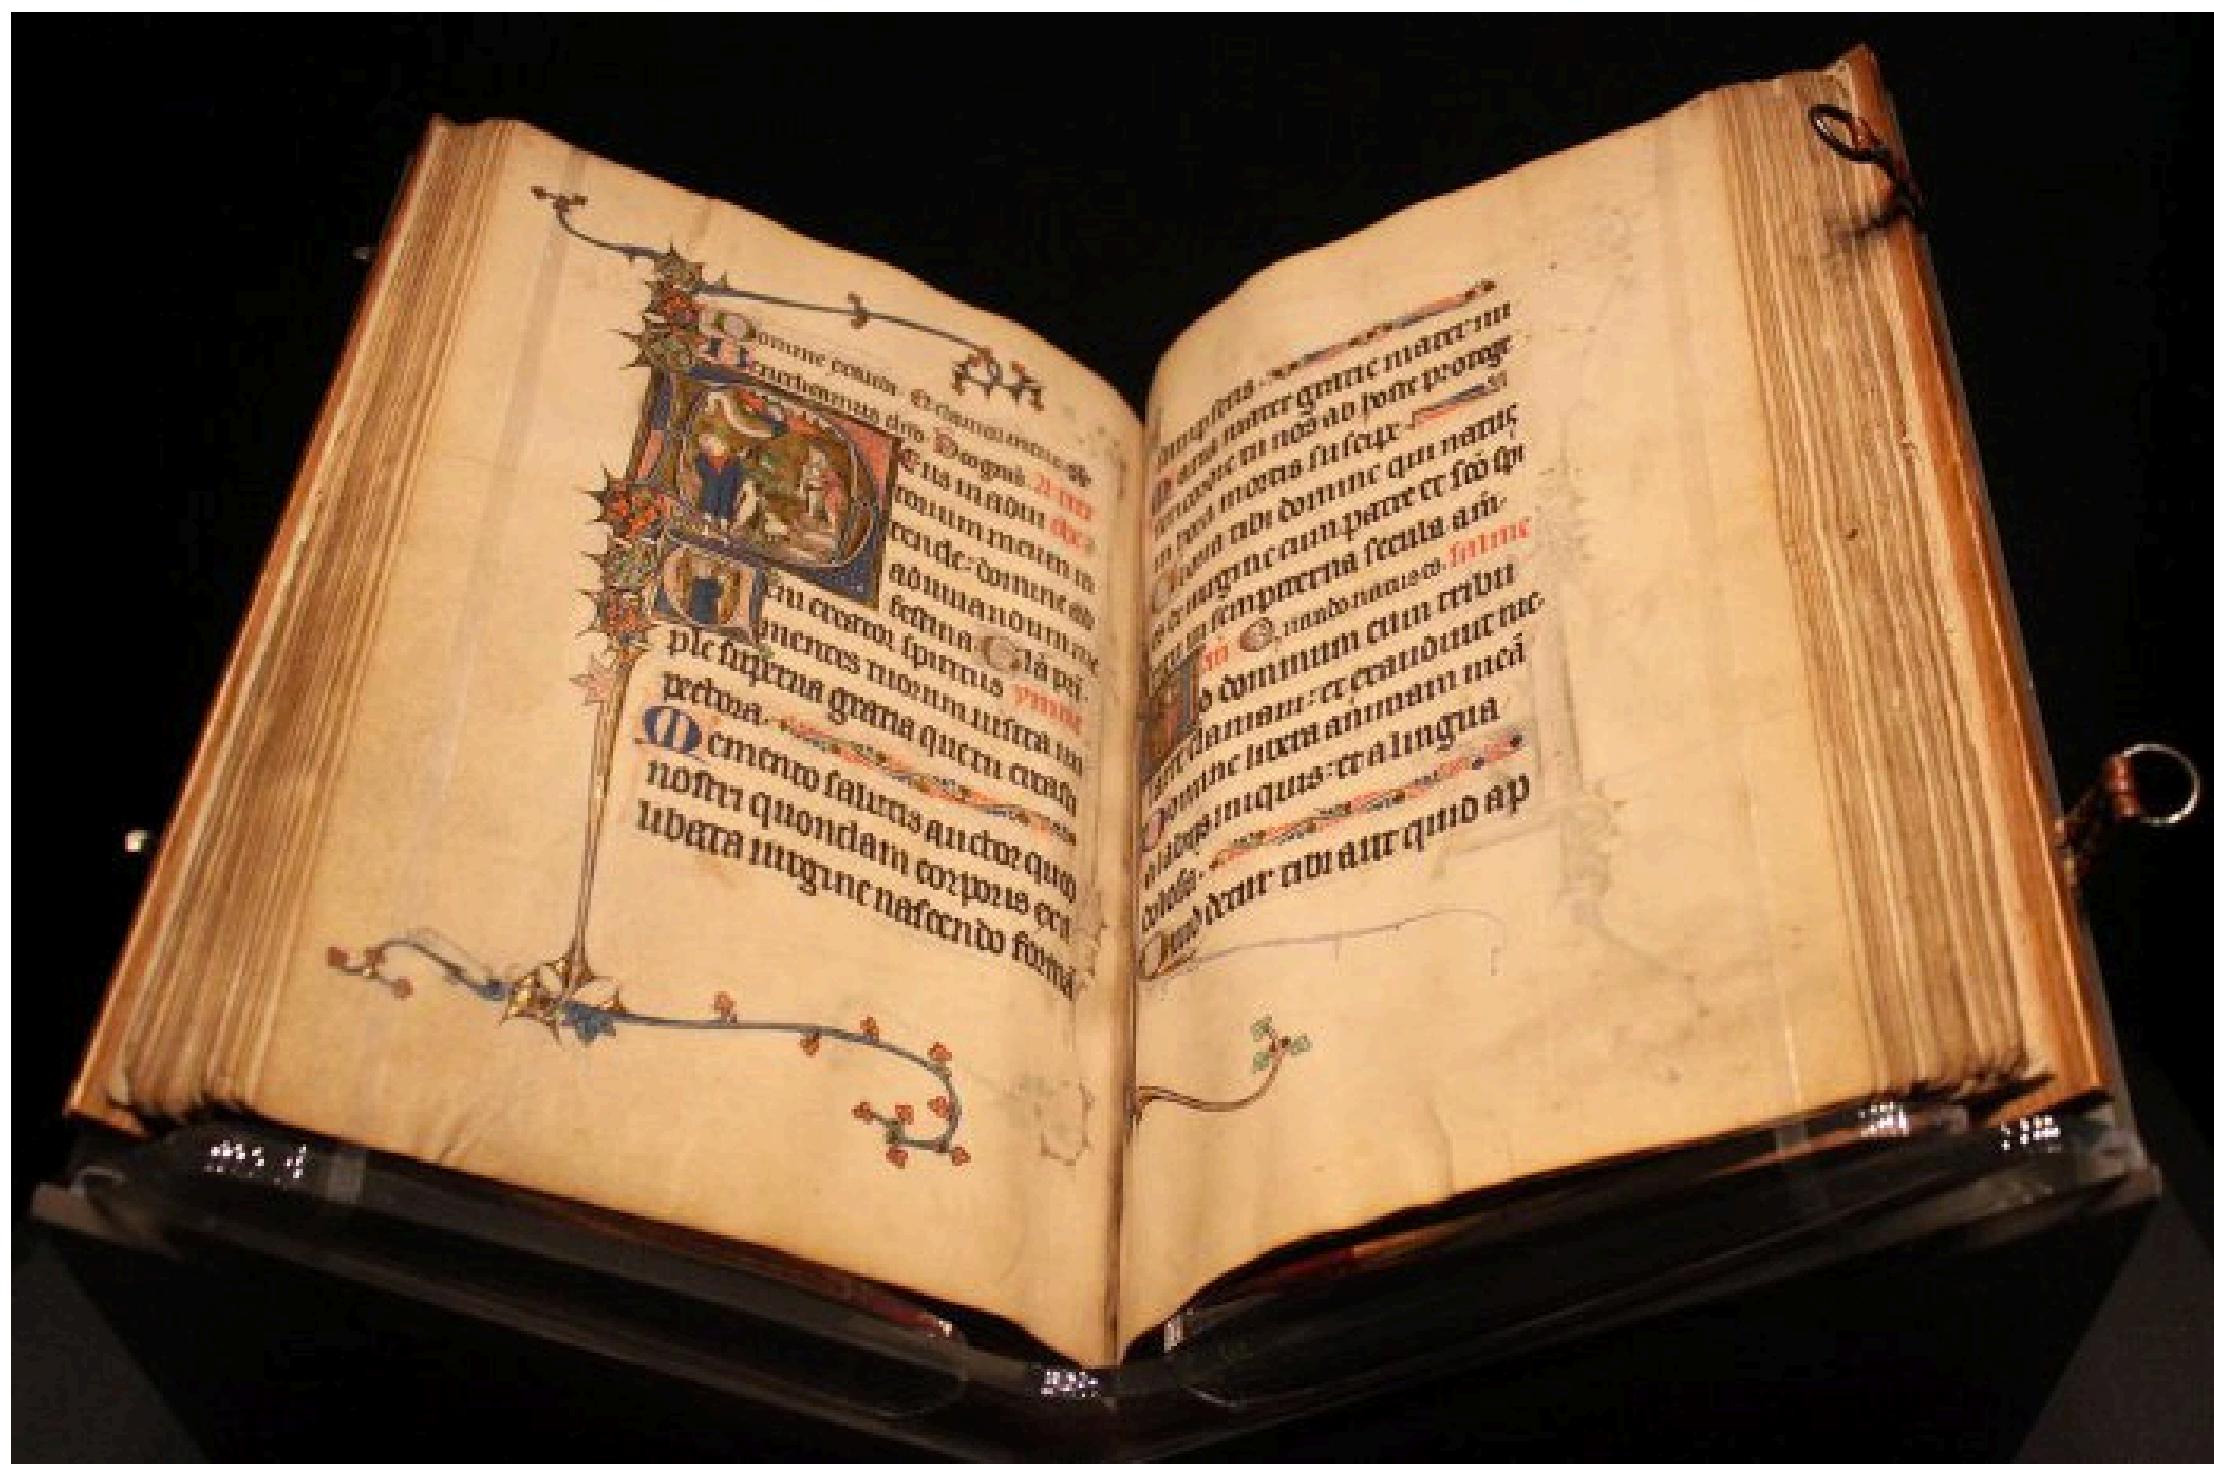 Domine exaudi. Et clamor meus
Benedicamus dno. Deo gras.
Eus in adiut
orium meum in
tende: domine ad
adiuuandum me
festina. Gla pri.
eni creator spiritus ymne
mentes tuorum uisita im
ple superna gratia que tu creasti
pectora.
Memento salutis auctor quod
nostri quondam corporis ex il
libata uirgine nascendo formā
sumpseris.
Maria mater gratie mater mi
sericordie tu nos ab hoste protege
in hora mortis suscipe.
Gloria tibi domine qui natus
es de uirgine cum patre et sc̄o sp̄i
in sempiterna secula. am̄.
dominum cum tribu
larer clamaui: et exaudiuit me.
Domine libera animam meā
a labijs iniquis: et a lingua
dolosa.
Quid detur tibi aut quid ap